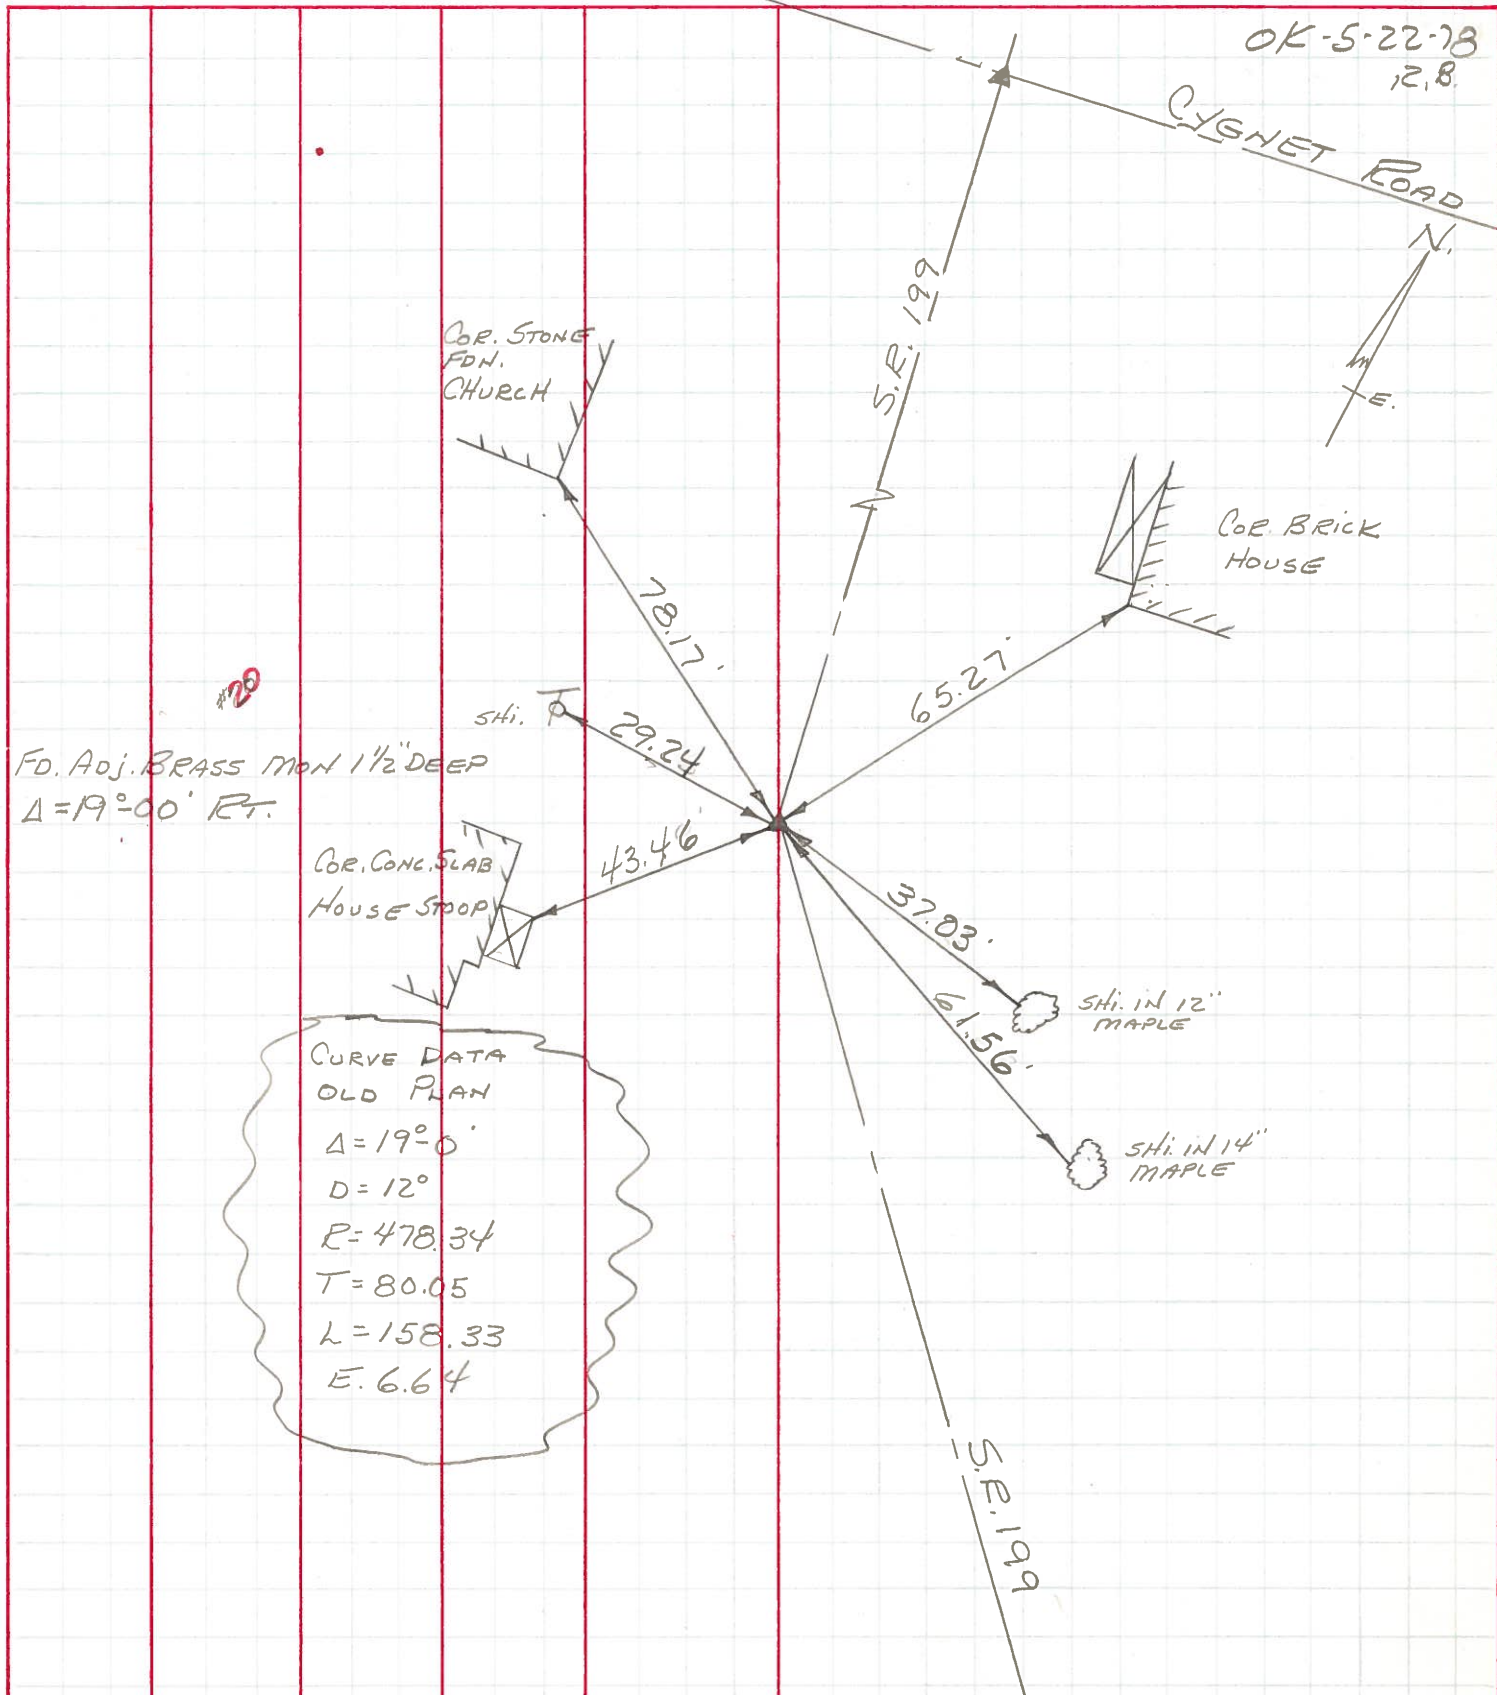 OK-5-22-78
R.B.
CYGNET ROAD
N.
E.
S.R. 199
COR. STONE
FDN.
CHURCH
COR. BRICK
HOUSE
78.17'
65.27'
#20
SHI.
29.24
FD. ADJ. BRASS MON 1 1/2" DEEP
Δ=19°-00' RT.
43.46'
COR. CONC. SLAB
HOUSE STOOP
37.03'
SHI. IN 12"
MAPLE
61.56'
SHI. IN 14"
MAPLE
CURVE DATA
OLD PLAN
Δ=19°-0'
D=12°
R=478.34
T=80.05
L=158.33
E. 6.64
S.R. 199